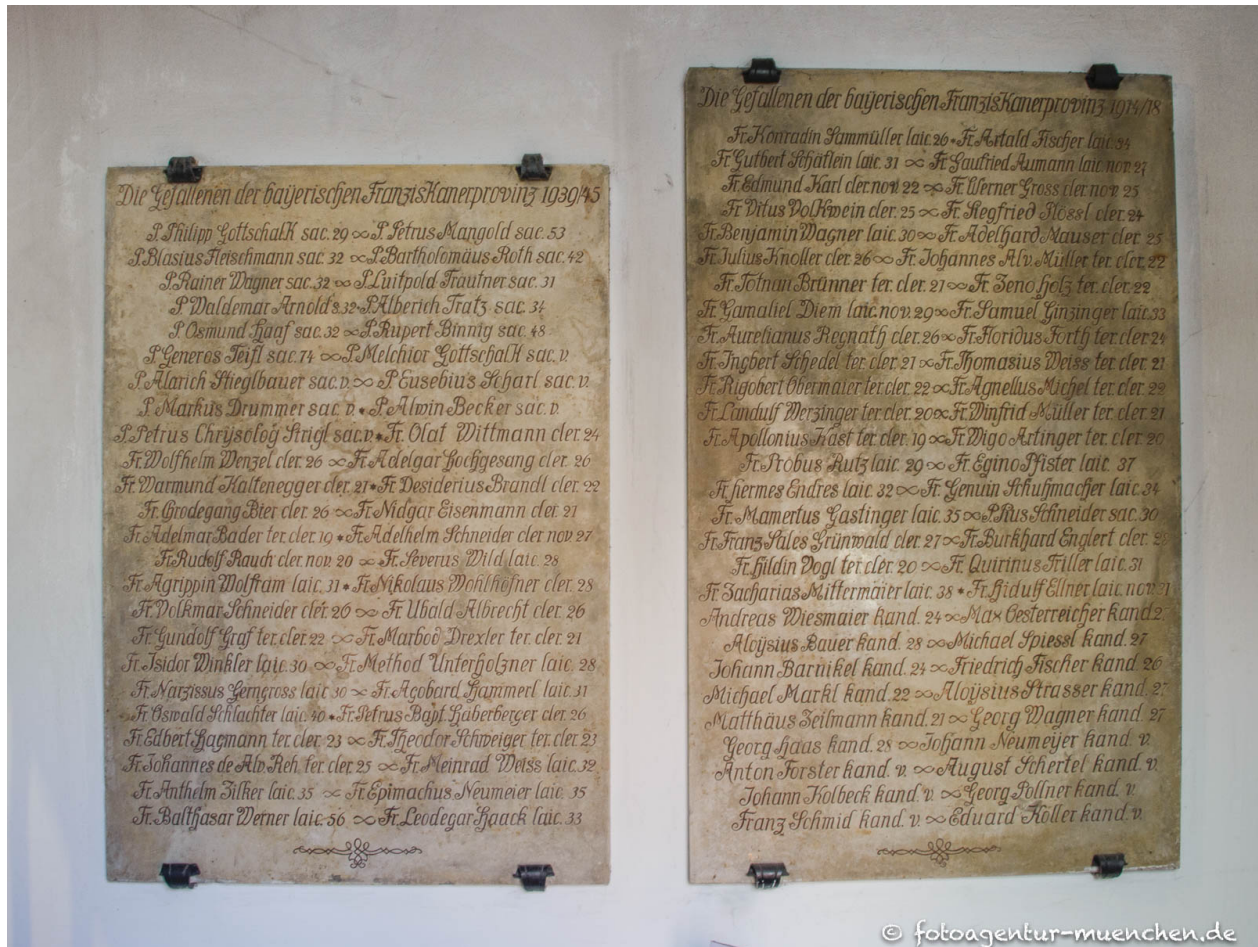 Die Gefallenen der baÿerischen Franziskanerprovinz 1939/45
P. Philipp Gottschalk sac. 29 ∞ P. Petrus Mangold sac. 53
P. Blasius Fleischmann sac. 32 ∞ P. Bartholomäus Roth sac. 42
P. Rainer Wagner sac. 32 ∞ P. Luitpold Trautner sac. 31
P. Waldemar Arnold s. 32 • P. Alberich Tratz sac. 34
P. Osmund Haaf sac. 32 ∞ P. Rupert Binnig sac. 48
P. Generos Teifl sac. 74 ∞ P. Melchior Gottschalk sac. v.
P. Alarich Stieglbauer sac. v. ∞ P. Eusebius Scharl sac. v.
P. Markus Drummer sac. v. • P. Alwin Becker sac. v.
P. Petrus Chrysolog Strigl sac. v. • Fr. Olaf Wittmann cler. 24
Fr. Wolfhelm Wenzel cler. 26 ∞ Fr. Adelgar Hochgesang cler. 26
Fr. Warmund Kaltenegger cler. 21 • Fr. Desiderius Brandl cler. 22
Fr. Grodegang Bier cler. 26 ∞ Fr. Nidgar Eisenmann cler. 21
Fr. Adelmar Bader ter. cler. 19 • Fr. Adelhelm Schneider cler nov 27
Fr. Rudolf Rauch cler nov. 20 ∞ Fr. Severus Wild laic. 28
Fr. Agrippin Wolfram laic. 31 • Fr. Nikolaus Wohlhöfner cler. 28
Fr. Volkmar Schneider cler. 26 ∞ Fr. Ubald Albrecht cler. 26
Fr. Gundolf Graf ter. cler. 22 ∞ Fr. Marbod Drexler ter. cler. 21
Fr. Isidor Winkler laic. 30 ∞ Fr. Method Unterholzner laic. 28
Fr. Narzissus Gerngross laic 30 ∞ Fr. Agobard Hammerl laic. 31
Fr. Oswald Schlachter laic. 40 • Fr. Petrus Bapt. Haberberger cler. 26
Fr. Edbert Hagmann ter. cler. 23 ∞ Fr. Theodor Schweiger ter. cler. 23
Fr. Johannes de Alv. Reh. ter. cler. 25 ∞ Fr. Meinrad Weiss laic. 32
Fr. Anthelm Zilker laic. 35 ∞ Fr. Epimachus Neumeier laic. 35
Fr. Balthasar Werner laic. 56 ∞ Fr. Leodegar Haack laic. 33
Die Gefallenen der bayerischen Franziskanerprovinz 1914/18
Fr. Konradin Sammüller laic. 26 • Fr. Artald Fischer laic. 34
Fr. Gutbert Schäflein laic. 31 ∞ Fr. Gaufried Aumann laic. nov.
Fr. Edmund Karl cler. nov. 22 ∞ Fr. Werner Gross cler nov. 25
Fr. Vitus Volkwein cler. 25 ∞ Fr. Siegfried Rössl cler. 24
Fr. Benjamin Wagner laic. 30 ∞ Fr. Adelhard Mauser cler. 25
Fr. Julius Knoller cler. 26 ∞ Fr. Johannes Alv. Müller ter. cler. 22
Fr. Totnan Brünner ter. cler. 21 ∞ Fr. Zeno Holz ter. cler. 22
Fr. Gamaliel Diem laic. nov. 29 ∞ Fr. Samuel Ginzinger laic. 33
Fr. Aurelianus Regnath cler. 26 ∞ Fr. Floridus Forth ter cler. 24
Fr. Ingbert Schedel ter cler. 21 ∞ Fr. Thomasius Weiss ter. cler. 21
Fr. Rigobert Obermaier ter. cler. 22 ∞ Fr. Agnellus Michel ter. cler. 22
Fr. Landulf Werzinger ter. cler. 20 ∞ Fr. Winfrid Müller ter. cler. 21
Fr. Apollonius Kast ter cler. 19 ∞ Fr. Wigo Artinger ter. cler. 20
Fr. Probus Rutz laic. 29 ∞ Fr. Egino Pfister laic. 37
Fr. Hermes Endres laic. 32 ∞ Fr. Genuin Schuhmacher laic. 34
Fr. Mamertus Gastinger laic. 35 ∞ P. Pius Schneider sac. 30
Fr. Franz Sales Grünwald cler. 27 ∞ Fr. Burkhard Englert cler.
Fr. Hildin Vogl ter cler. 20 ∞ Fr. Quirinus Friller laic. 31
Fr. Zacharias Mittermaier laic. 38 • Fr. Hidulf Ellner laic. nov.
Andreas Wiesmaier kand. 24 ∞ Max Oesterreicher kand.
Aloÿsius Bauer kand. 28 ∞ Michael Spiessl kand. 27
Johann Barnikel kand. 24 ∞ Friedrich Fischer kand. 26
Michael Markl kand. 22 ∞ Aloÿsius Strasser kand.
Matthäus Zeilmann kand. 21 ∞ Georg Wagner kand. 27
Georg Haas kand. 28 ∞ Johann Neumeÿer kand. v.
Anton Forster kand. v. ∞ August Schertel kand. v.
Johann Kolbeck kand. v. ∞ Georg Pollner kand. v
Franz Schmid kand. v. ∞ Eduard Koller kand. v.
© fotoagentur-muenchen.de